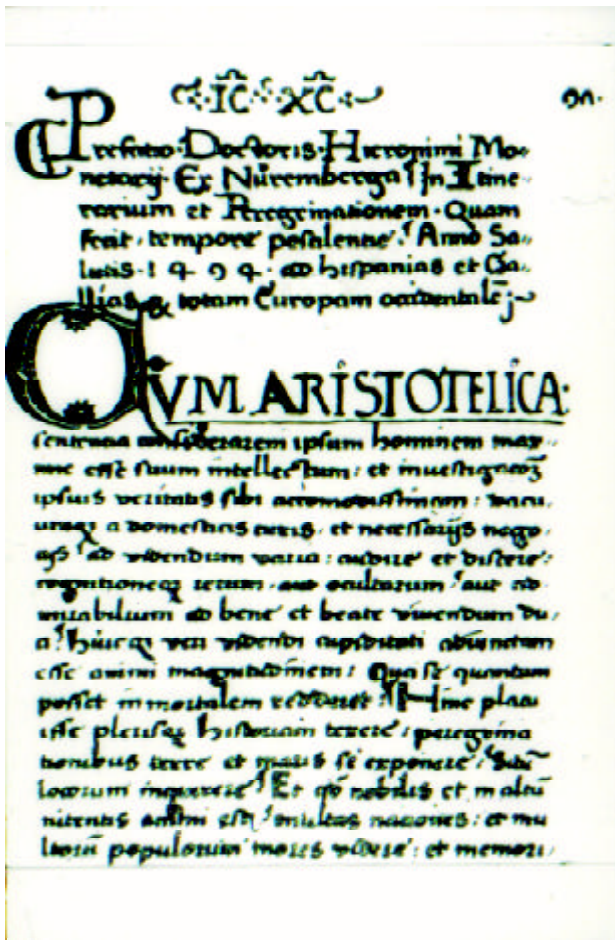 IC XC 97.
Prefatio Doctoris Hieronimi Mo
netarij Ex Nuremberga In Itine
rarium et Peregrinationem Quam
fecit tempore pestilentie Anno Sa
lutis 1494 ad hispanias et Ga
llias & totam Europam occidentalē
CVM ARISTOTELICA
sentencia ipsum hominem max
ime esse suum intellectum: et
ipsius veritatis sibi
a domesticis curis et necessarijs nego
ad videndum varia: audire et discere
rerum aut ocultarum aut ad
mirabilium ad bene et beate vivendum du
veri videndi cupiditati
esse animi magnitudinem: Qua se quantum
posset inmortalem redderet Hinc placu
isse historiam terere peregrina
tionibus terre et maris se exponere
locorum inquirere Et nobilis et maltū
nitentis animi est multas naciones: et mu
ltorū populorum mores videre: et memori